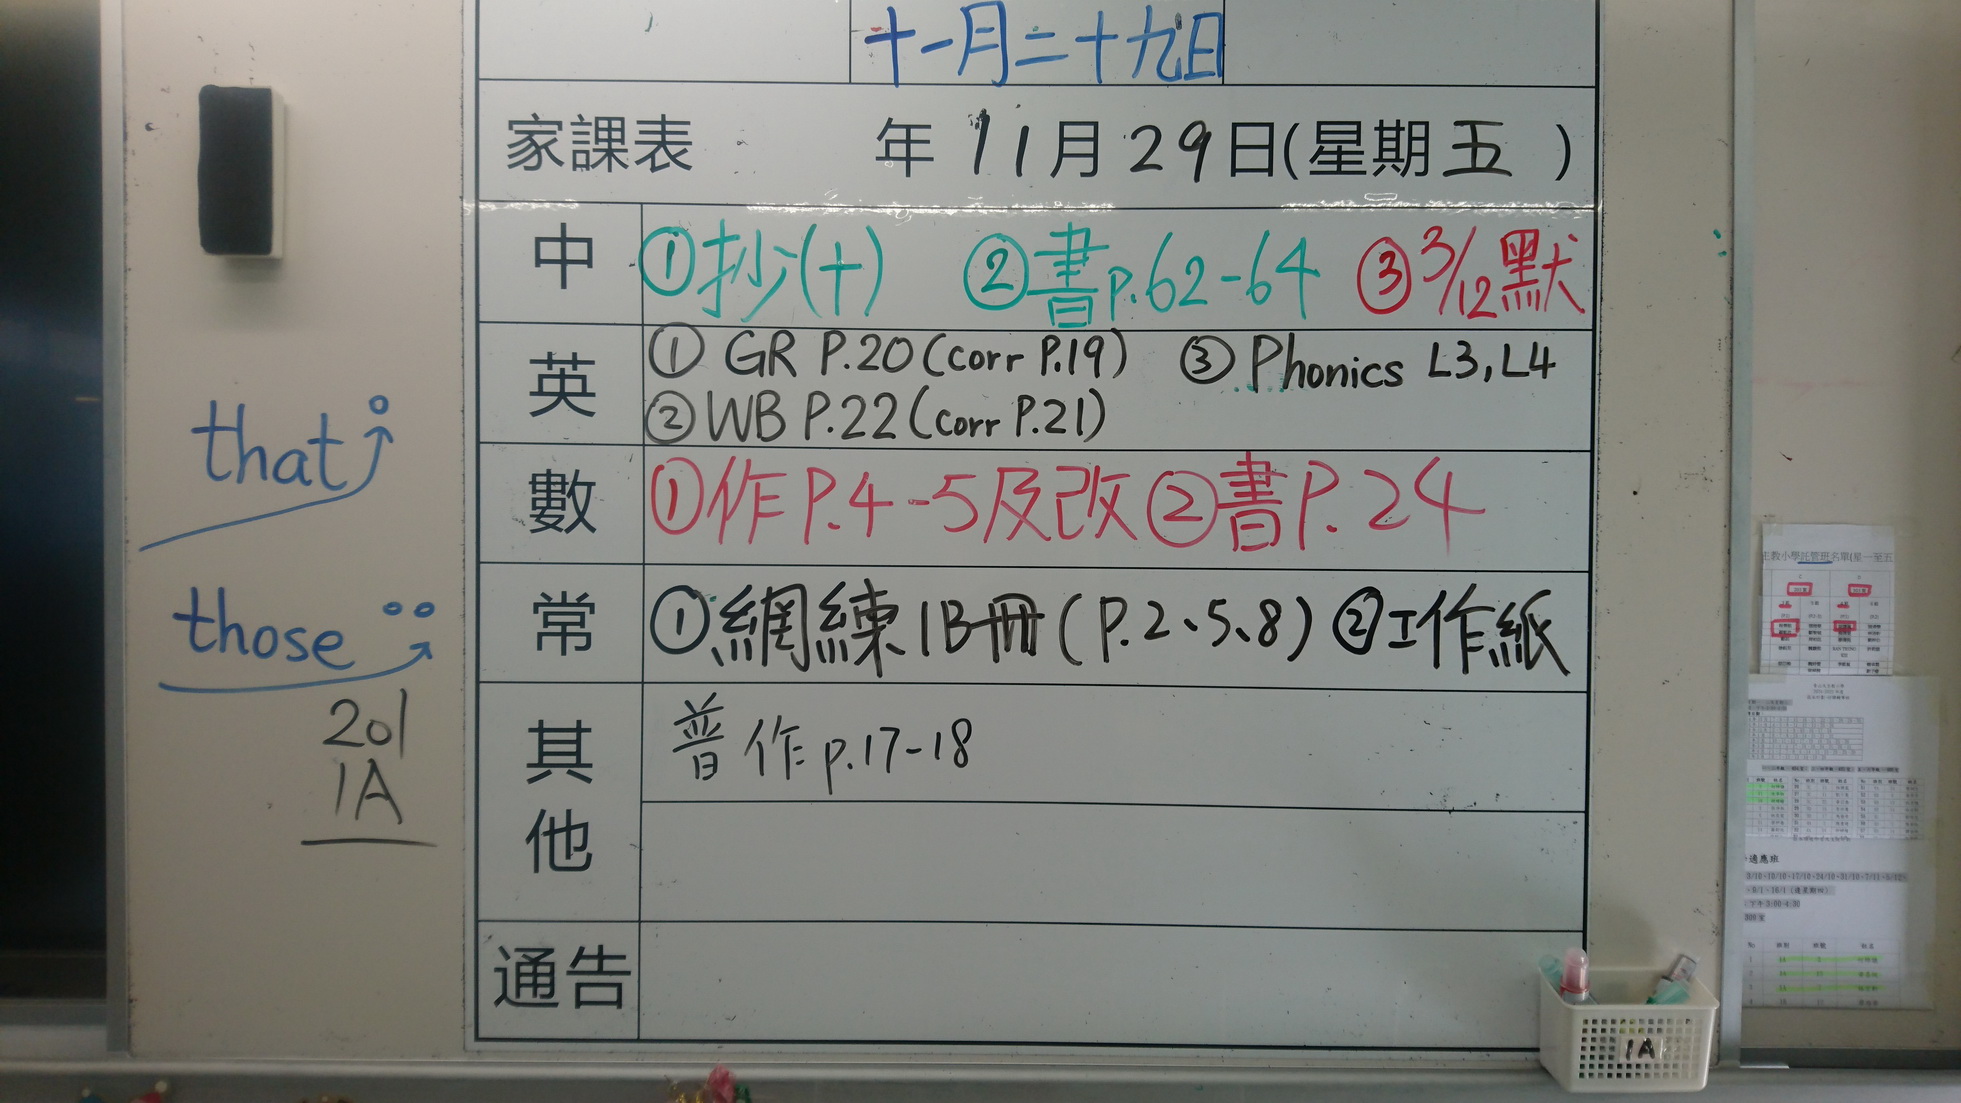 十一月二十九日
家課表 年 11月29日(星期五 )
中 ①抄(十) ②書p.62-64 ③3/12默
英 ① GR P.20(corr P.19) ③ Phonics L3,L4
② WB P.22(corr P.21)
數 ①作P.4-5及改②書P.24
常 ①網練1B冊(P.2、5、8)②工作紙
其他 普作p.17-18
通告
that
those
201
1A
1A
適應班